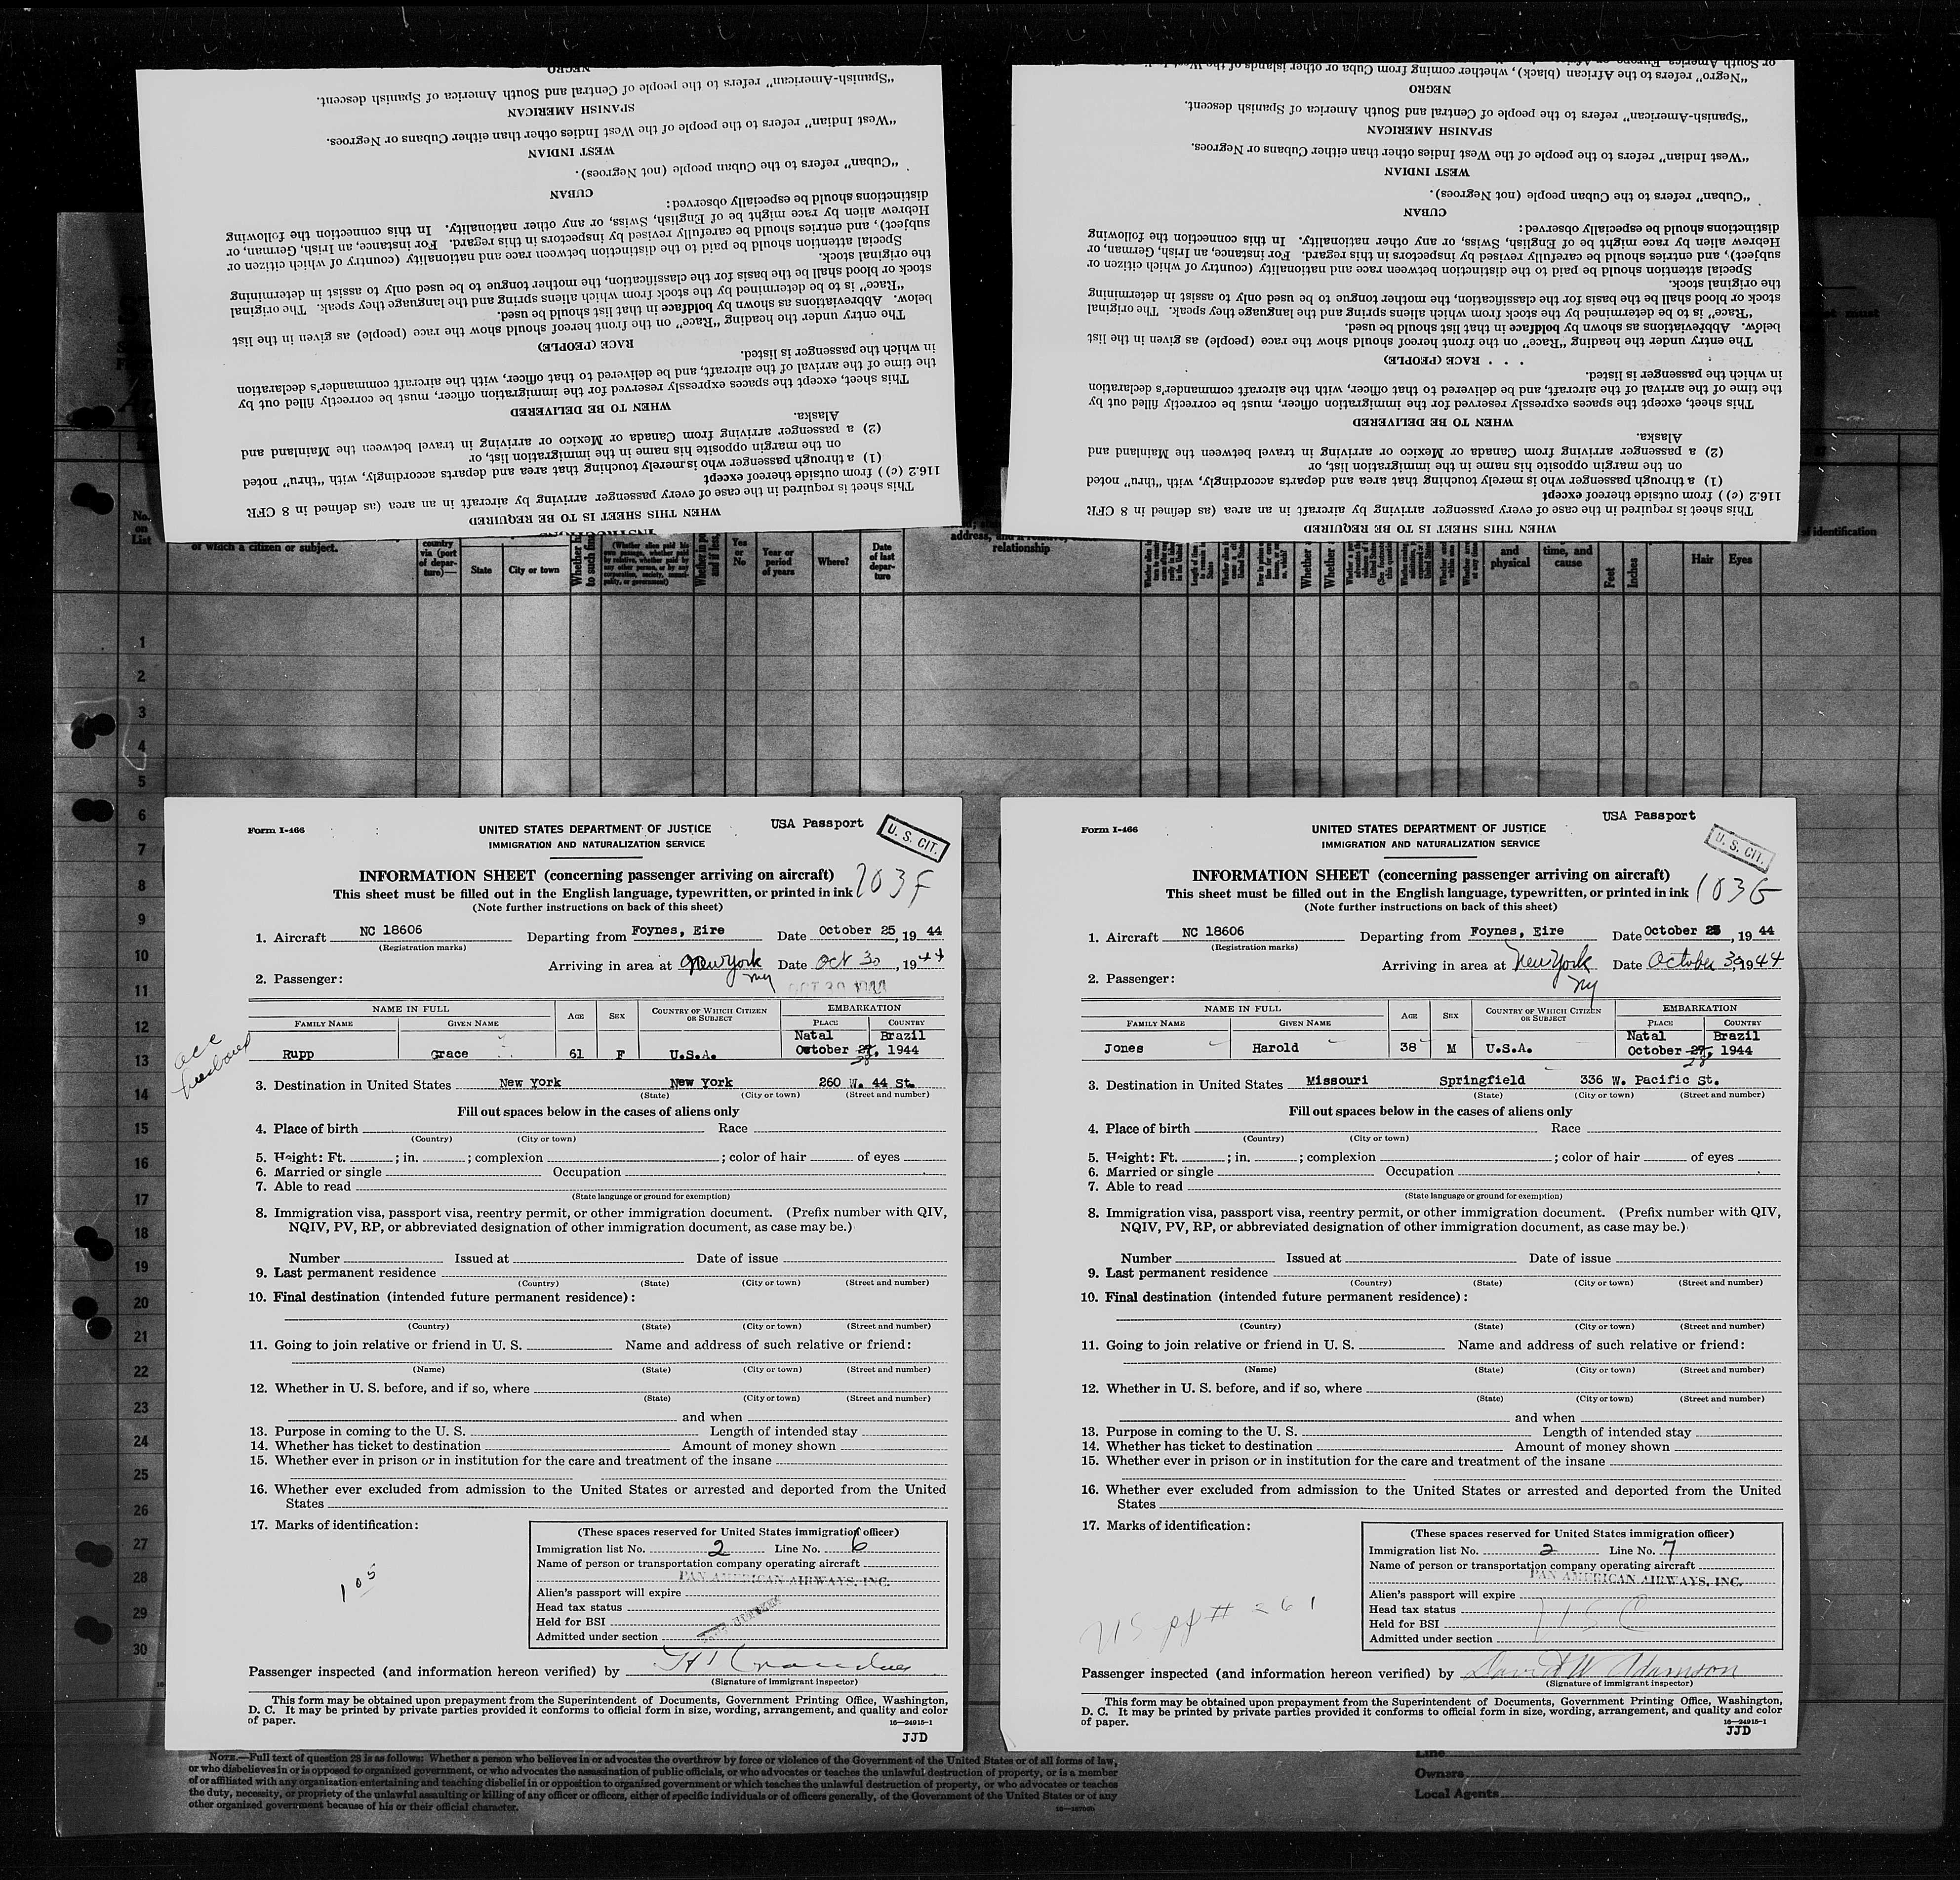 NEGRO
"Spanish-American" refers to the people of Central and South America of Spanish descent.
SPANISH AMERICAN
"West Indian" refers to the people of the West Indies other than either Cubans or Negroes.
WEST INDIAN
"Cuban" refers to the Cuban people (not Negroes).
CUBAN
distinctions should be especially observed:
Hebrew alien by race might be of English, Swiss, or any other nationality. In this connection the following
subject), and entries should be carefully revised by inspectors in this regard. For instance, an Irish, German, or
Special attention should be paid to the distinction between race and nationality (country of which citizen or
the original stock.
stock or blood shall be the basis for the classification, the mother tongue to be used only to assist in determining
"Race" is to be determined by the stock from which aliens spring and the language they speak. The original
below. Abbreviations as shown by boldface in that list should be used.
The entry under the heading "Race" on the front hereof should show the race (people) as given in the list
RACE (PEOPLE)
in which the passenger is listed.
the time of the arrival of the aircraft, and be delivered to that officer, with the aircraft commander's declaration
This sheet, except the spaces expressly reserved for the immigration officer, must be correctly filled out by
WHEN TO BE DELIVERED
Alaska.
(2) a passenger arriving from Canada or Mexico or arriving in travel between the Mainland and
on the margin opposite his name in the immigration list, or
(1) a through passenger who is merely touching that area and departs accordingly, with "thru" noted
116.2 (c)) from outside thereof except
This sheet is required in the case of every passenger arriving by aircraft in an area (as defined in 8 CFR
WHEN THIS SHEET IS TO BE REQUIRED
"Negro" refers to the African (black), whether coming from Cuba or other islands of the West Indies
NEGRO
"Spanish-American" refers to the people of Central and South America of Spanish descent.
SPANISH AMERICAN
"West Indian" refers to the people of the West Indies other than either Cubans or Negroes.
WEST INDIAN
"Cuban" refers to the Cuban people (not Negroes).
CUBAN
distinctions should be especially observed:
Hebrew alien by race might be of English, Swiss, or any other nationality. In this connection the following
subject), and entries should be carefully revised by inspectors in this regard. For instance, an Irish, German, or
Special attention should be paid to the distinction between race and nationality (country of which citizen or
the original stock.
stock or blood shall be the basis for the classification, the mother tongue to be used only to assist in determining
"Race" is to be determined by the stock from which aliens spring and the language they speak. The original
below. Abbreviations as shown by boldface in that list should be used.
The entry under the heading "Race" on the front hereof should show the race (people) as given in the list
RACE (PEOPLE)
in which the passenger is listed.
the time of the arrival of the aircraft, and be delivered to that officer, with the aircraft commander's declaration
This sheet, except the spaces expressly reserved for the immigration officer, must be correctly filled out by
WHEN TO BE DELIVERED
Alaska.
(2) a passenger arriving from Canada or Mexico or arriving in travel between the Mainland and
on the margin opposite his name in the immigration list, or
(1) a through passenger who is merely touching that area and departs accordingly, with "thru" noted
116.2 (c)) from outside thereof except
This sheet is required in the case of every passenger arriving by aircraft in an area (as defined in 8 CFR
WHEN THIS SHEET IS TO BE REQUIRED
No. on List
of which a citizen or subject.
country via (port of departure)—
State City or town
Yes or No
Year or period of years
Where?
Date of last departure
relationship
and physical
time, and cause
Feet Inches
Hair Eyes
of identification
1
2
3
4
5
6
7
8
9
10
11
12
13
14
15
16
17
18
19
20
21
22
23
24
25
26
27
28
29
30
Form I-466
UNITED STATES DEPARTMENT OF JUSTICE
IMMIGRATION AND NATURALIZATION SERVICE
USA Passport
U. S. CIT.
INFORMATION SHEET (concerning passenger arriving on aircraft)
103F
This sheet must be filled out in the English language, typewritten, or printed in ink
(Note further instructions on back of this sheet)
1. Aircraft NC 18606 Departing from Foynes, Eire Date October 25, 1944
(Registration marks)
Arriving in area at New York NY Date Oct 30, 1944
2. Passenger:
OCT 30 1944
NAME IN FULL AGE SEX COUNTRY OF WHICH CITIZEN OR SUBJECT EMBARKATION
FAMILY NAME GIVEN NAME PLACE COUNTRY
Natal Brazil
Rupp Grace 61 F U.S.A. October 27, 1944
28
3. Destination in United States New York New York 260 W. 44 St.
(State) (City or town) (Street and number)
Fill out spaces below in the cases of aliens only
4. Place of birth Race
(Country) (City or town)
5. Height: Ft. ; in. ; complexion ; color of hair of eyes
6. Married or single Occupation
7. Able to read
(State language or ground for exemption)
8. Immigration visa, passport visa, reentry permit, or other immigration document. (Prefix number with QIV,
NQIV, PV, RP, or abbreviated designation of other immigration document, as case may be.)
Number Issued at Date of issue
9. Last permanent residence
(Country) (State) (City or town) (Street and number)
10. Final destination (intended future permanent residence):
(Country) (State) (City or town) (Street and number)
11. Going to join relative or friend in U. S. Name and address of such relative or friend:
(Name) (State) (City or town) (Street and number)
12. Whether in U. S. before, and if so, where
(State) (City or town) (Street and number)
and when
13. Purpose in coming to the U. S. Length of intended stay
14. Whether has ticket to destination Amount of money shown
15. Whether ever in prison or in institution for the care and treatment of the insane
16. Whether ever excluded from admission to the United States or arrested and deported from the United
States
17. Marks of identification:
105
(These spaces reserved for United States immigration officer)
Immigration list No. 2 Line No. 6
Name of person or transportation company operating aircraft
PAN AMERICAN AIRWAYS, INC.
Alien's passport will expire
Head tax status
Held for BSI
Admitted under section
Passenger inspected (and information hereon verified) by
(Signature of immigrant inspector)
This form may be obtained upon prepayment from the Superintendent of Documents, Government Printing Office, Washington,
D. C. It may be printed by private parties provided it conforms to official form in size, wording, arrangement, and quality and color
of paper.
16—24915-1
JJD
Form I-466
UNITED STATES DEPARTMENT OF JUSTICE
IMMIGRATION AND NATURALIZATION SERVICE
USA Passport
U. S. CIT.
INFORMATION SHEET (concerning passenger arriving on aircraft)
103G
This sheet must be filled out in the English language, typewritten, or printed in ink
(Note further instructions on back of this sheet)
1. Aircraft NC 18606 Departing from Foynes, Eire Date October 25, 1944
(Registration marks)
Arriving in area at New York NY Date October 30, 1944
2. Passenger:
NAME IN FULL AGE SEX COUNTRY OF WHICH CITIZEN OR SUBJECT EMBARKATION
FAMILY NAME GIVEN NAME PLACE COUNTRY
Natal Brazil
Jones Harold 38 M U.S.A. October 27, 1944
28
3. Destination in United States Missouri Springfield 336 W. Pacific St.
(State) (City or town) (Street and number)
Fill out spaces below in the cases of aliens only
4. Place of birth Race
(Country) (City or town)
5. Height: Ft. ; in. ; complexion ; color of hair of eyes
6. Married or single Occupation
7. Able to read
(State language or ground for exemption)
8. Immigration visa, passport visa, reentry permit, or other immigration document. (Prefix number with QIV,
NQIV, PV, RP, or abbreviated designation of other immigration document, as case may be.)
Number Issued at Date of issue
9. Last permanent residence
(Country) (State) (City or town) (Street and number)
10. Final destination (intended future permanent residence):
(Country) (State) (City or town) (Street and number)
11. Going to join relative or friend in U. S. Name and address of such relative or friend:
(Name) (State) (City or town) (Street and number)
12. Whether in U. S. before, and if so, where
(State) (City or town) (Street and number)
and when
13. Purpose in coming to the U. S. Length of intended stay
14. Whether has ticket to destination Amount of money shown
15. Whether ever in prison or in institution for the care and treatment of the insane
16. Whether ever excluded from admission to the United States or arrested and deported from the United
States
17. Marks of identification:
US pp# 261
(These spaces reserved for United States immigration officer)
Immigration list No. 2 Line No. 7
Name of person or transportation company operating aircraft
PAN AMERICAN AIRWAYS, INC.
Alien's passport will expire
Head tax status
USC
Held for BSI
Admitted under section
Passenger inspected (and information hereon verified) by David W Adamson
(Signature of immigrant inspector)
This form may be obtained upon prepayment from the Superintendent of Documents, Government Printing Office, Washington,
D. C. It may be printed by private parties provided it conforms to official form in size, wording, arrangement, and quality and color
of paper.
16—24915-1
JJD
NOTE.—Full text of question 28 is as follows: Whether a person who believes in or advocates the overthrow by force or violence of the Government of the United States or of all forms of law,
or who disbelieves in or is opposed to organized government, or who advocates the assassination of public officials, or who advocates or teaches the unlawful destruction of property, or is a member
of or affiliated with any organization entertaining and teaching disbelief in or opposition to organized government or which teaches the unlawful destruction of property, or who advocates or teaches
the duty, necessity, or propriety of the unlawful assaulting or killing of any officer or officers, either of specific individuals or of officers generally, of the Government of the United States or of any
other organized government because of his or their official character.
Line
Owners
Local Agents